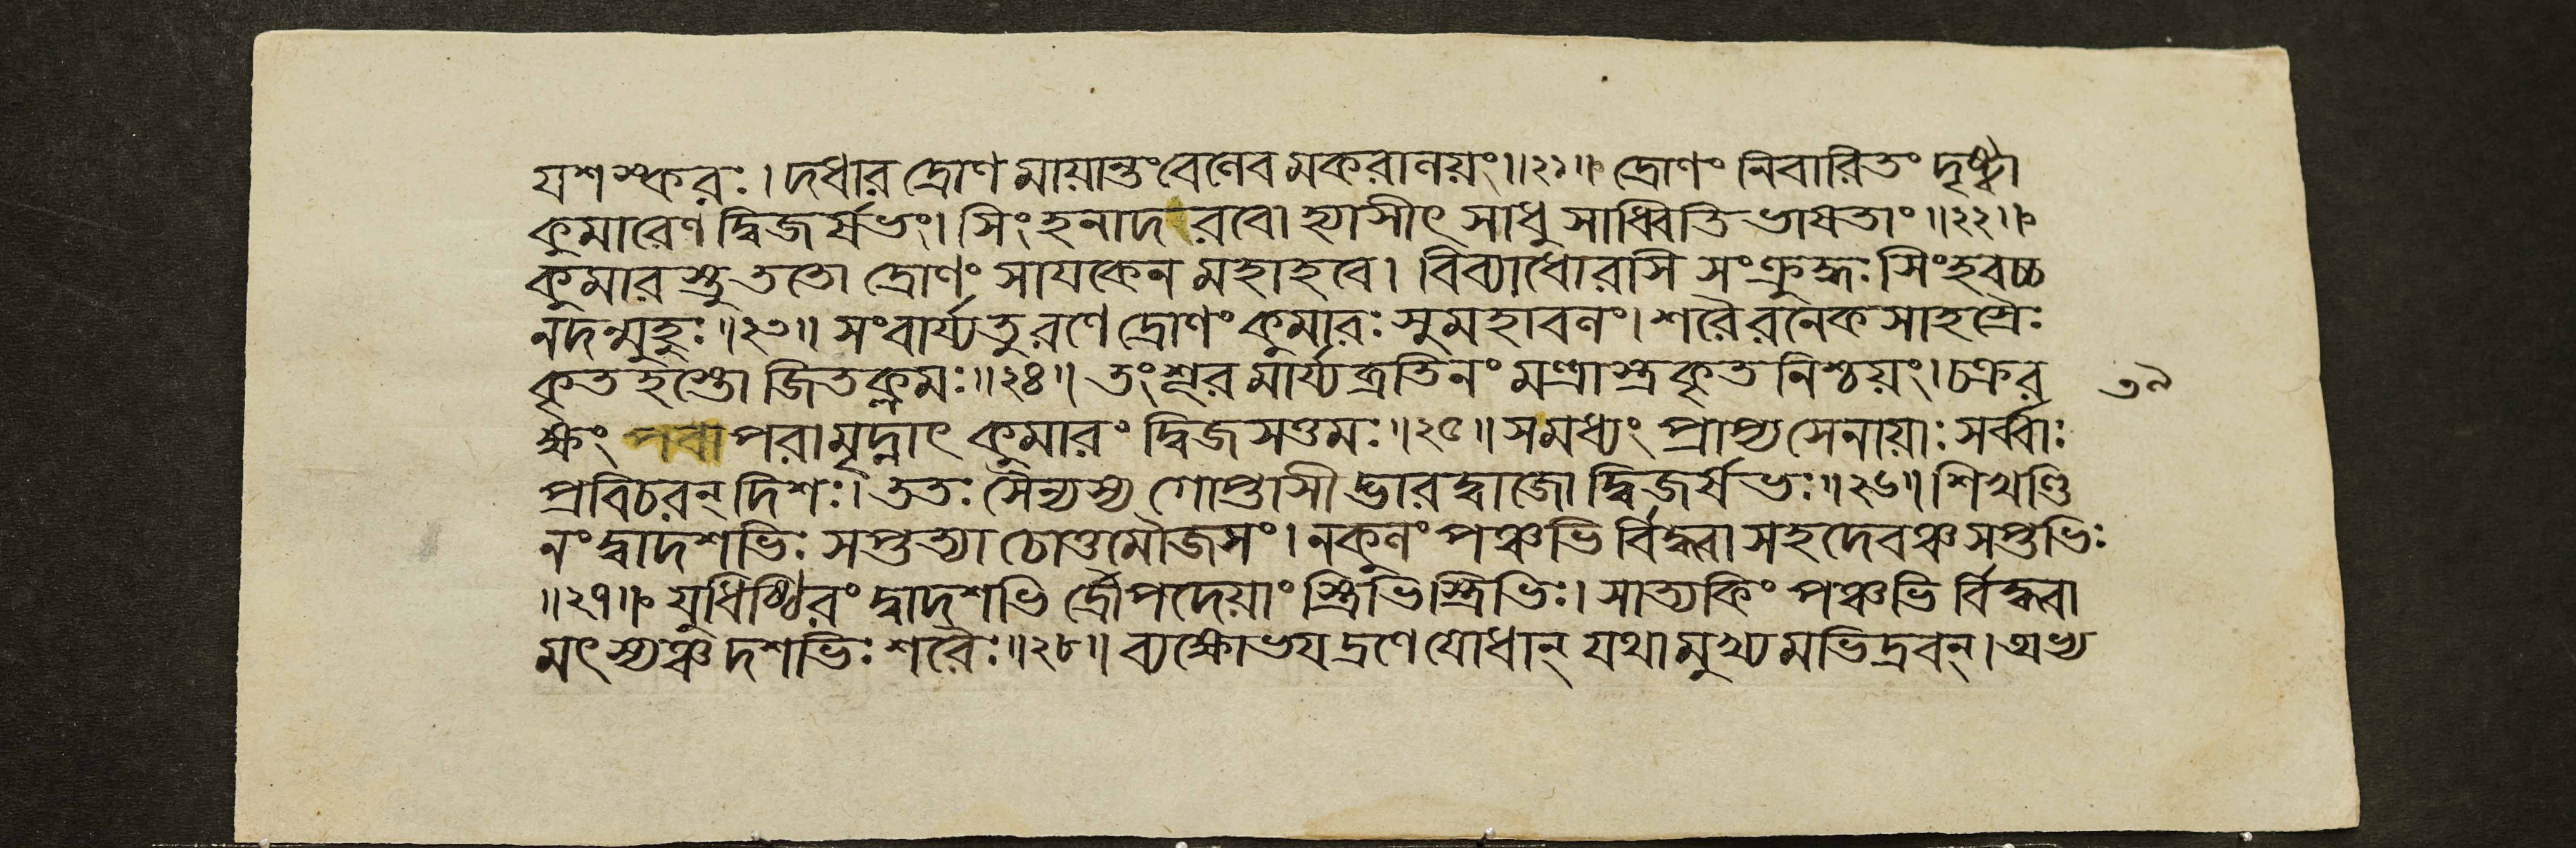 যশস্করঃ। দধার দ্রোণ মায়ান্তংবেলেব মকরালয়ং॥২১॥ দ্রোণং নিবারিতং দৃষ্ট্বা
কুমারেণ দ্বিজর্ষভং। সিংহনাদ রবো হ্যাসীৎ সাধু সাধ্বিতি ভাষতাং॥২২॥
কুমার স্তু ততো দ্রোণং সায়কেন মহাহবে। বিব্যাধোরসি সংক্রুদ্ধঃ সিংহবচ্চ
নদন্মুহুঃ॥২৩॥ সংবার্য্যতু রণে দ্রোণং কুমারঃ সুমহাবলং। শরৈরনেক সাহস্রৈঃ
কৃত হস্তো জিতক্লমঃ॥২৪॥ তংশূর মার্য্যব্রতিনং মন্ত্রাস্ত্রকৃত নিশ্চয়ং। চক্রর
ক্ষং পরামৃদ্নাৎ কুমারং দ্বিজ সত্তমঃ॥২৫॥ সমধ্যং প্রাপ্য সেনায়াঃ সর্ব্বাঃ
প্রবিচরন্ দিশঃ। ততঃ সৈন্যস্য গোপ্তাসী দ্ভারদ্বাজো দ্বিজর্ষভঃ॥২৬॥ শিখণ্ডি
নং দ্বাদশভিঃ সপ্তত্যা চোত্তমৌজসং। নকুলং পঞ্চভি র্বিদ্ধ্বা সহদেবঞ্চ সপ্তভিঃ
॥২৭॥ যুধিষ্ঠিরং দ্বাদশভি র্দ্রৌপদেয়াং স্ত্রিভিস্ত্রিভিঃ। সাত্যকিং পঞ্চভি র্বিদ্ধ্বা
মৎস্যঞ্চ দশভিঃ শরৈঃ॥২৮॥ ব্যক্ষোভয দ্রণে যোধান্ যথা মুখ্য মভিদ্রবন্। অভ্য
৩৯